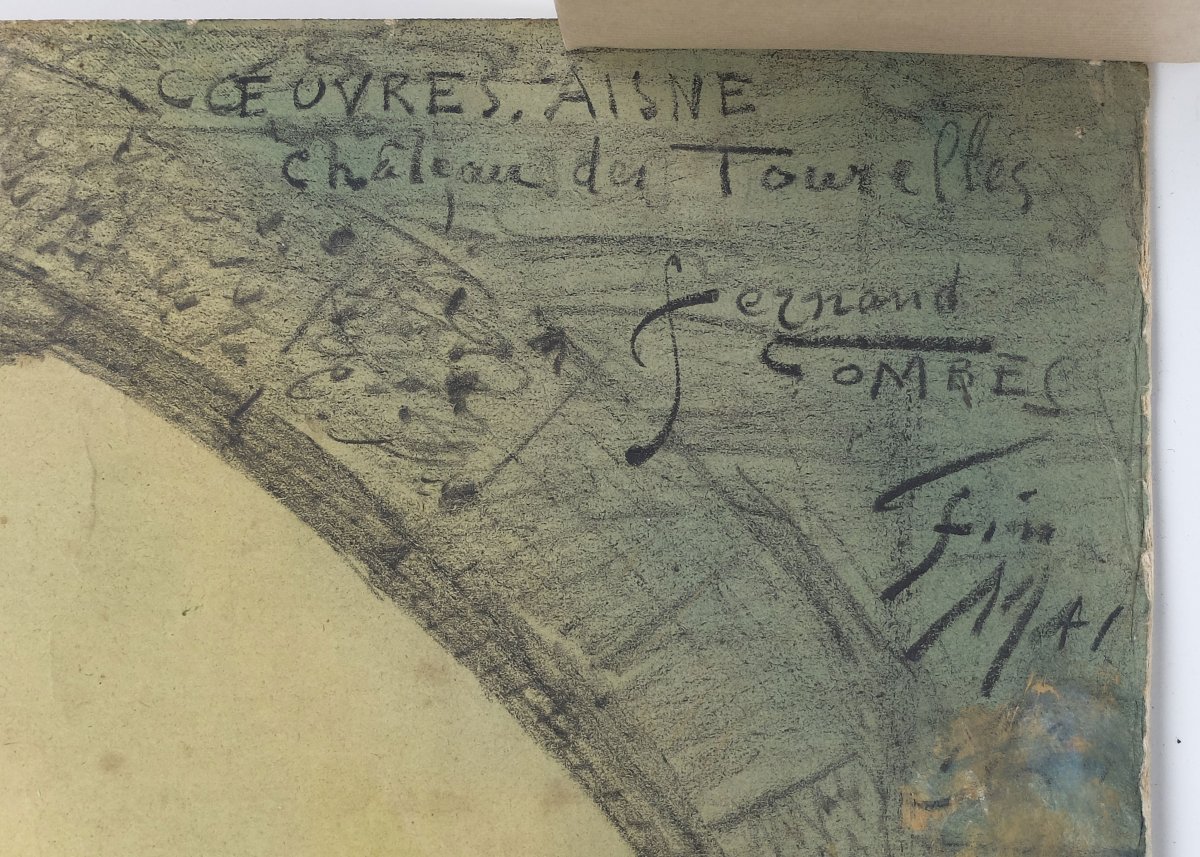 CŒUVRES, AISNE
château des Tourelles
fernand
SOMBRES
fin
MAI